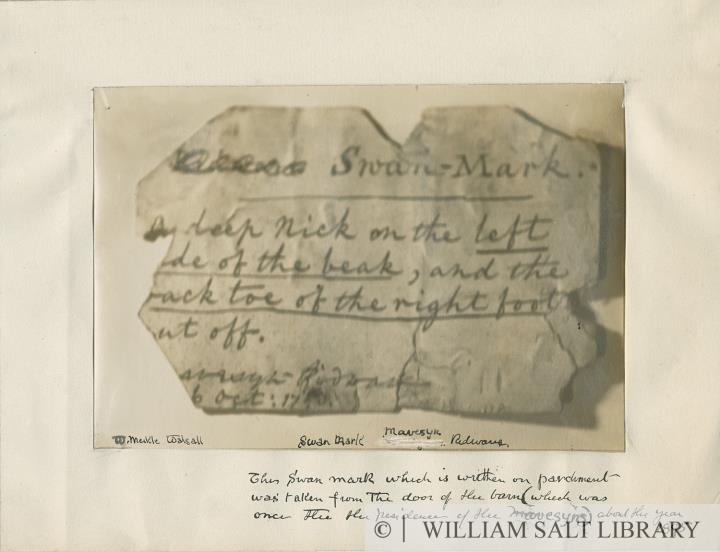 Swan-Mark.
A deep Nick on the left
de of the beak, and the
ack toe of the right foot
ut off.
avesyn Ridware
6 Oct: 17
W. Meikle Walsall
Swan Mark Mavesyn Ridware
This Swan mark which is written on parchment
was taken from the door of the barn (which was
once the the residence of the Mavesyns) about the year
© WILLIAM SALT LIBRARY